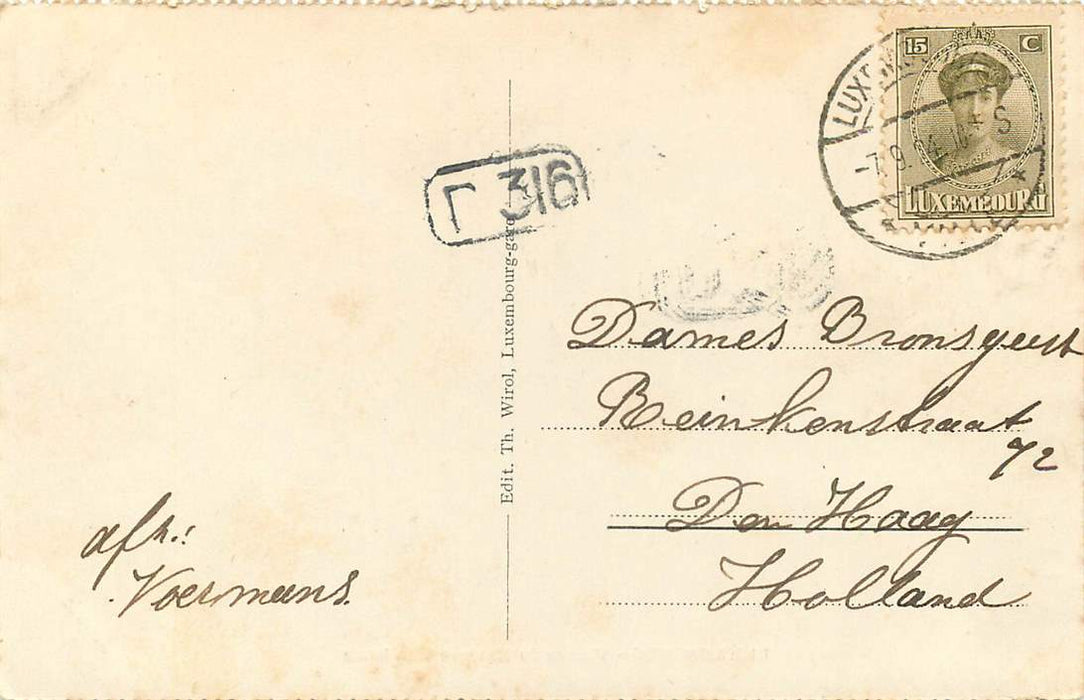 15 C
LUXEMBOURG
316
Edit. Th. Wirol, Luxembourg-gare
Dames Bronsgeest
Reinkenstraat
72
Den Haag
Holland
afz.:
Voermans.